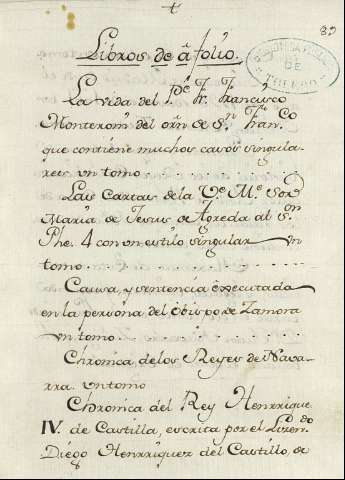 83
Libros de â folio.
La vida del P.e Fr. Francisco
Monteron.. del orn de S.n Fran.co
que contiene muchos casos singula-
res vn tomo
Las Cartas de la V.e M.e Sor
Maria de Jesus de Agreda al S.or
Phe. 4 con vn estilo singular vn
tomo.
Causa, y sentencia executada
en la persona del Obispo de Zamora
vn tomo.
Chronica de los Reyes de Nava-
rra. vn tomo
Chronica del Rey Henrrique
IV. de Castilla, escrita por el Lizen.do
Diego Henrriquez del Castillo, de